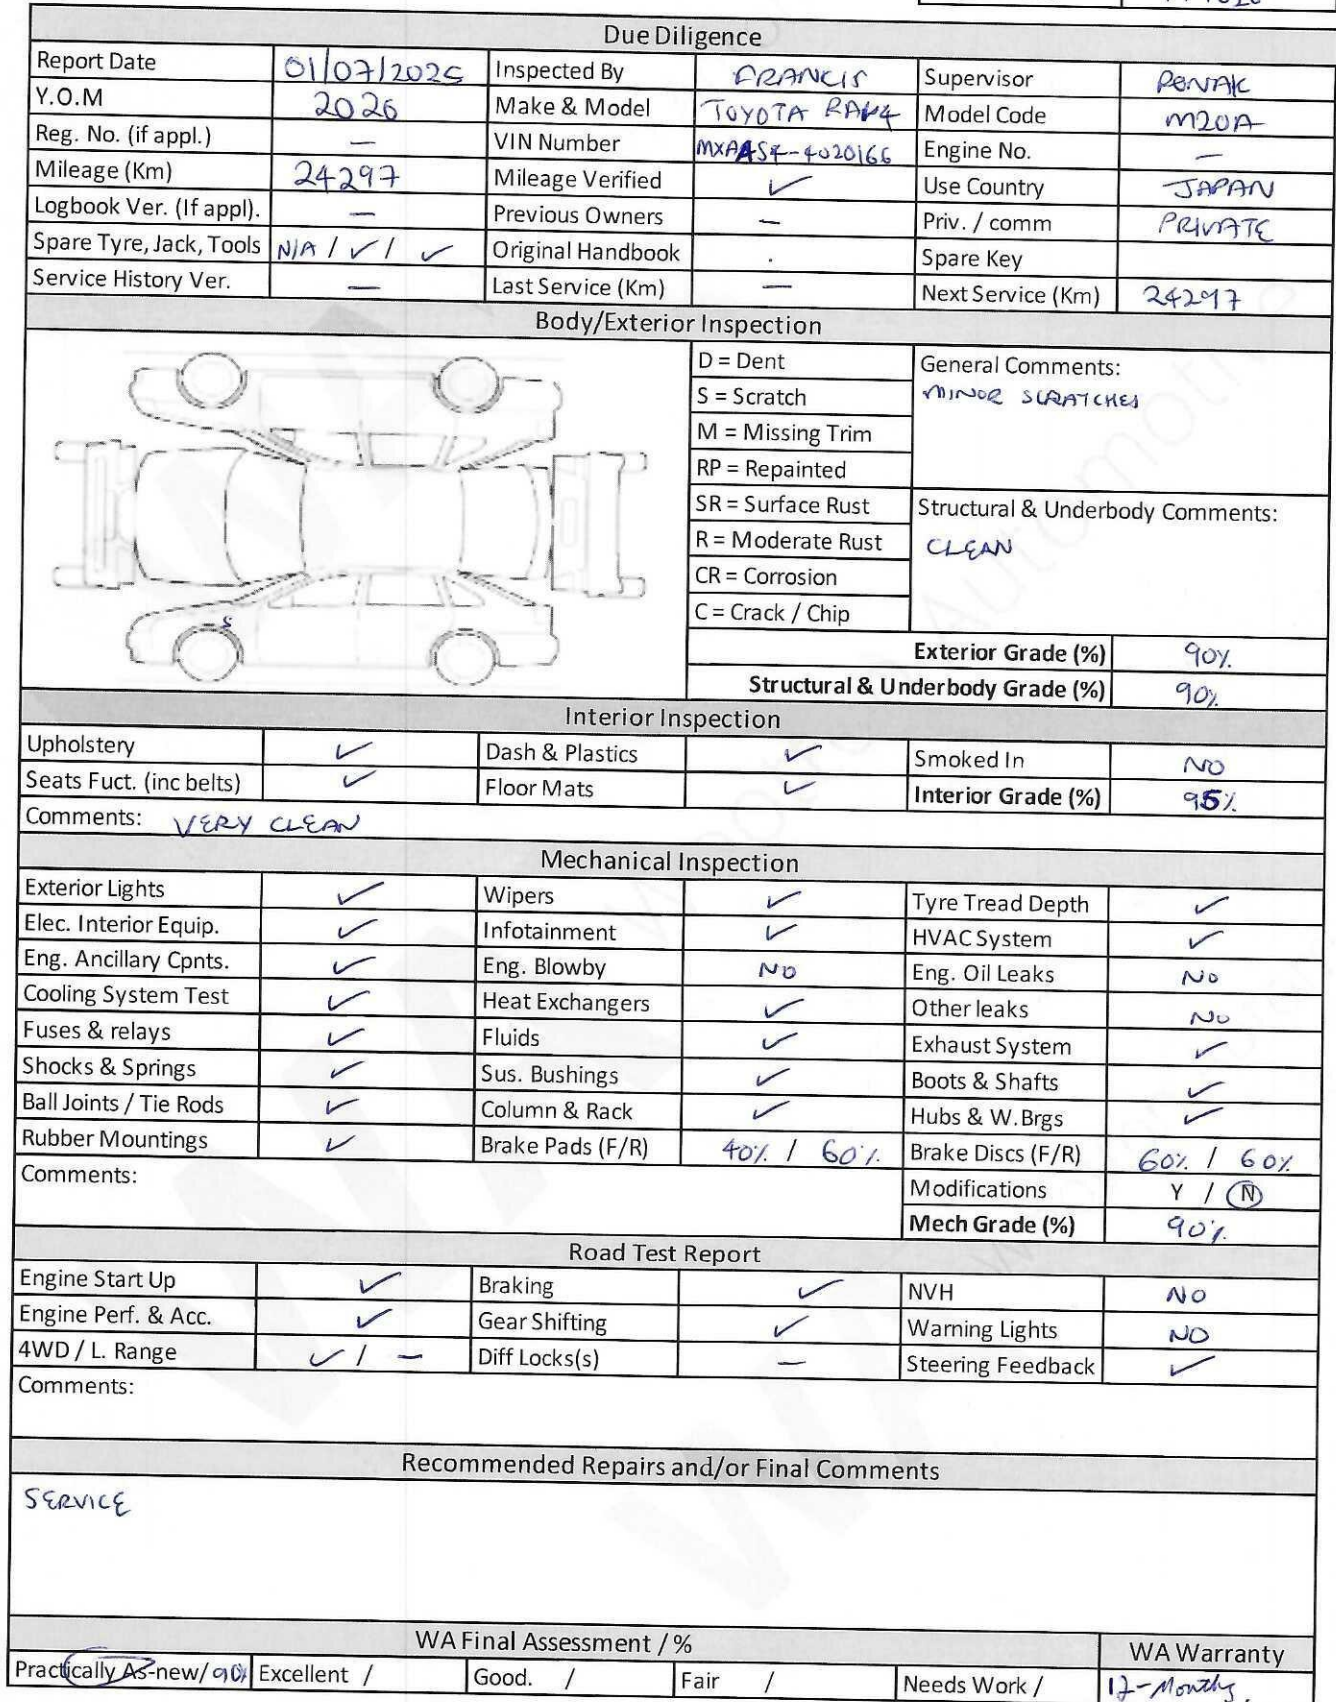 Due Diligence
Report Date 01/07/2025 Inspected By FRANCIS Supervisor
Y.O.M 2020 Make & Model TOYOTA RAV4 Model Code M20A
Reg. No. (if appl.) — VIN Number MXAA54-4020166 Engine No. —
Mileage (Km) 24297 Mileage Verified ✓ Use Country JAPAN
Logbook Ver. (If appl). — Previous Owners — Priv. / comm PRIVATE
Spare Tyre, Jack, Tools N/A / ✓ / ✓ Original Handbook . Spare Key
Service History Ver. — Last Service (Km) — Next Service (Km) 24297
Body/Exterior Inspection
D = Dent
S = Scratch
M = Missing Trim
RP = Repainted
SR = Surface Rust
R = Moderate Rust
CR = Corrosion
C = Crack / Chip
General Comments:
MINOR SCRATCHES
Structural & Underbody Comments:
CLEAN
S
Exterior Grade (%) 90%
Structural & Underbody Grade (%) 90%
Interior Inspection
Upholstery ✓ Dash & Plastics ✓ Smoked In NO
Seats Fuct. (inc belts) ✓ Floor Mats ✓ Interior Grade (%) 95%
Comments: VERY CLEAN
Mechanical Inspection
Exterior Lights ✓ Wipers ✓ Tyre Tread Depth ✓
Elec. Interior Equip. ✓ Infotainment ✓ HVAC System ✓
Eng. Ancillary Cpnts. ✓ Eng. Blowby NO Eng. Oil Leaks NO
Cooling System Test ✓ Heat Exchangers ✓ Other leaks NO
Fuses & relays ✓ Fluids ✓ Exhaust System ✓
Shocks & Springs ✓ Sus. Bushings ✓ Boots & Shafts ✓
Ball Joints / Tie Rods ✓ Column & Rack ✓ Hubs & W.Brgs ✓
Rubber Mountings ✓ Brake Pads (F/R) 40% / 60% Brake Discs (F/R) 60% / 60%
Comments:
Modifications Y / N
Mech Grade (%) 90%
Road Test Report
Engine Start Up ✓ Braking ✓ NVH NO
Engine Perf. & Acc. ✓ Gear Shifting ✓ Warning Lights NO
4WD / L. Range ✓ / — Diff Locks(s) — Steering Feedback ✓
Comments:
Recommended Repairs and/or Final Comments
SERVICE
WA Final Assessment / % WA Warranty
Practically As-new/ 90% Excellent / Good. / Fair / Needs Work / 12-Months.